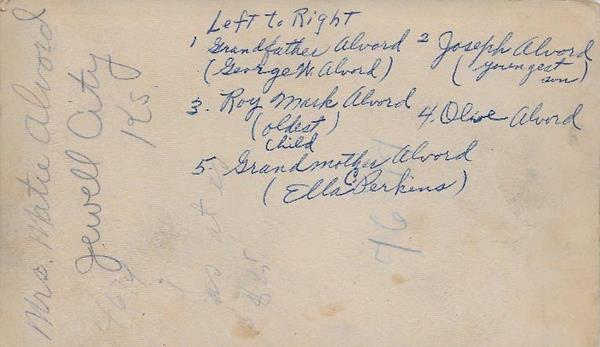 Left to Right
1 Grandfather Alvord
(George W. Alvord)
2 Joseph Alvord
(youngest
son)
3. Roy Mark Alvord
(oldest)
child
4. Olive Alvord
5. Grandmother Alvord
(Ella C Perkins)
Mrs. Matie Alvord
Jewell City
Ks